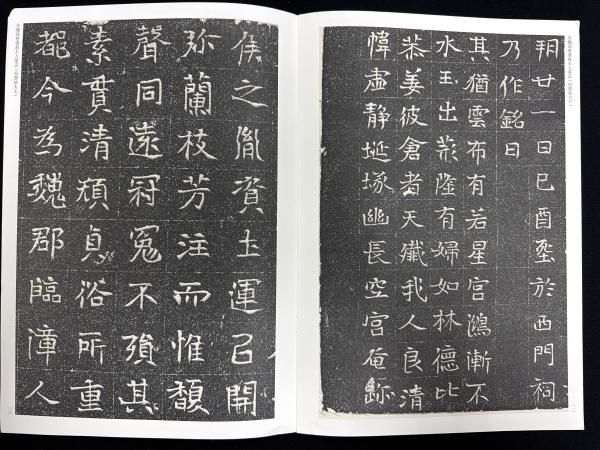 朔廿一日己酉堊於西門祠
乃作銘曰
其猶雲布有若星宮鴻漸不
水玉出荊隆有婦如林德比
恭姜彼倉者天殲我人良清
幃虛静埏埸幽長空宮奄跡
侯之胤資土運啓開
珎蘭枝芳注而惟馥
聲同遠冠冕不殞其
素貫清頏貞谷所重
都今為魏郡臨漳人